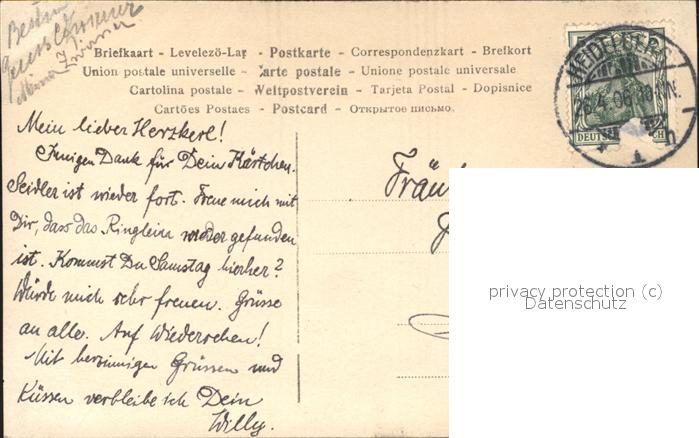 Besten
Minna
Briefkaart - Levelezö-Lap - Postkarte - Correspondenzkart - Brefkort
Union postale universelle - Carte postale - Unione postale universale
Cartolina postale - Weltpostverein - Tarjeta Postal - Dopisnice
Cartões Postaes - Postcard - Открытое письмо.
HEIDELBERG
26.4.06.10-11N.
DEUTSCH CH
Mein lieber Herzkerl!
Innigen Dank für Dein Kärtchen.
Seidler ist wieder fort. Freue mich mit
Dir, dass das Ringlein wieder gefunden
ist. Kommst Du Samstag hierher?
Würde mich sehr freuen. Grüsse
an alle. Auf Wiedersehen!
Mit herzinnigen Grüssen und
Küssen verbleibe ich Dein
Willy.
Fräul
privacy protection (c)
Datenschutz